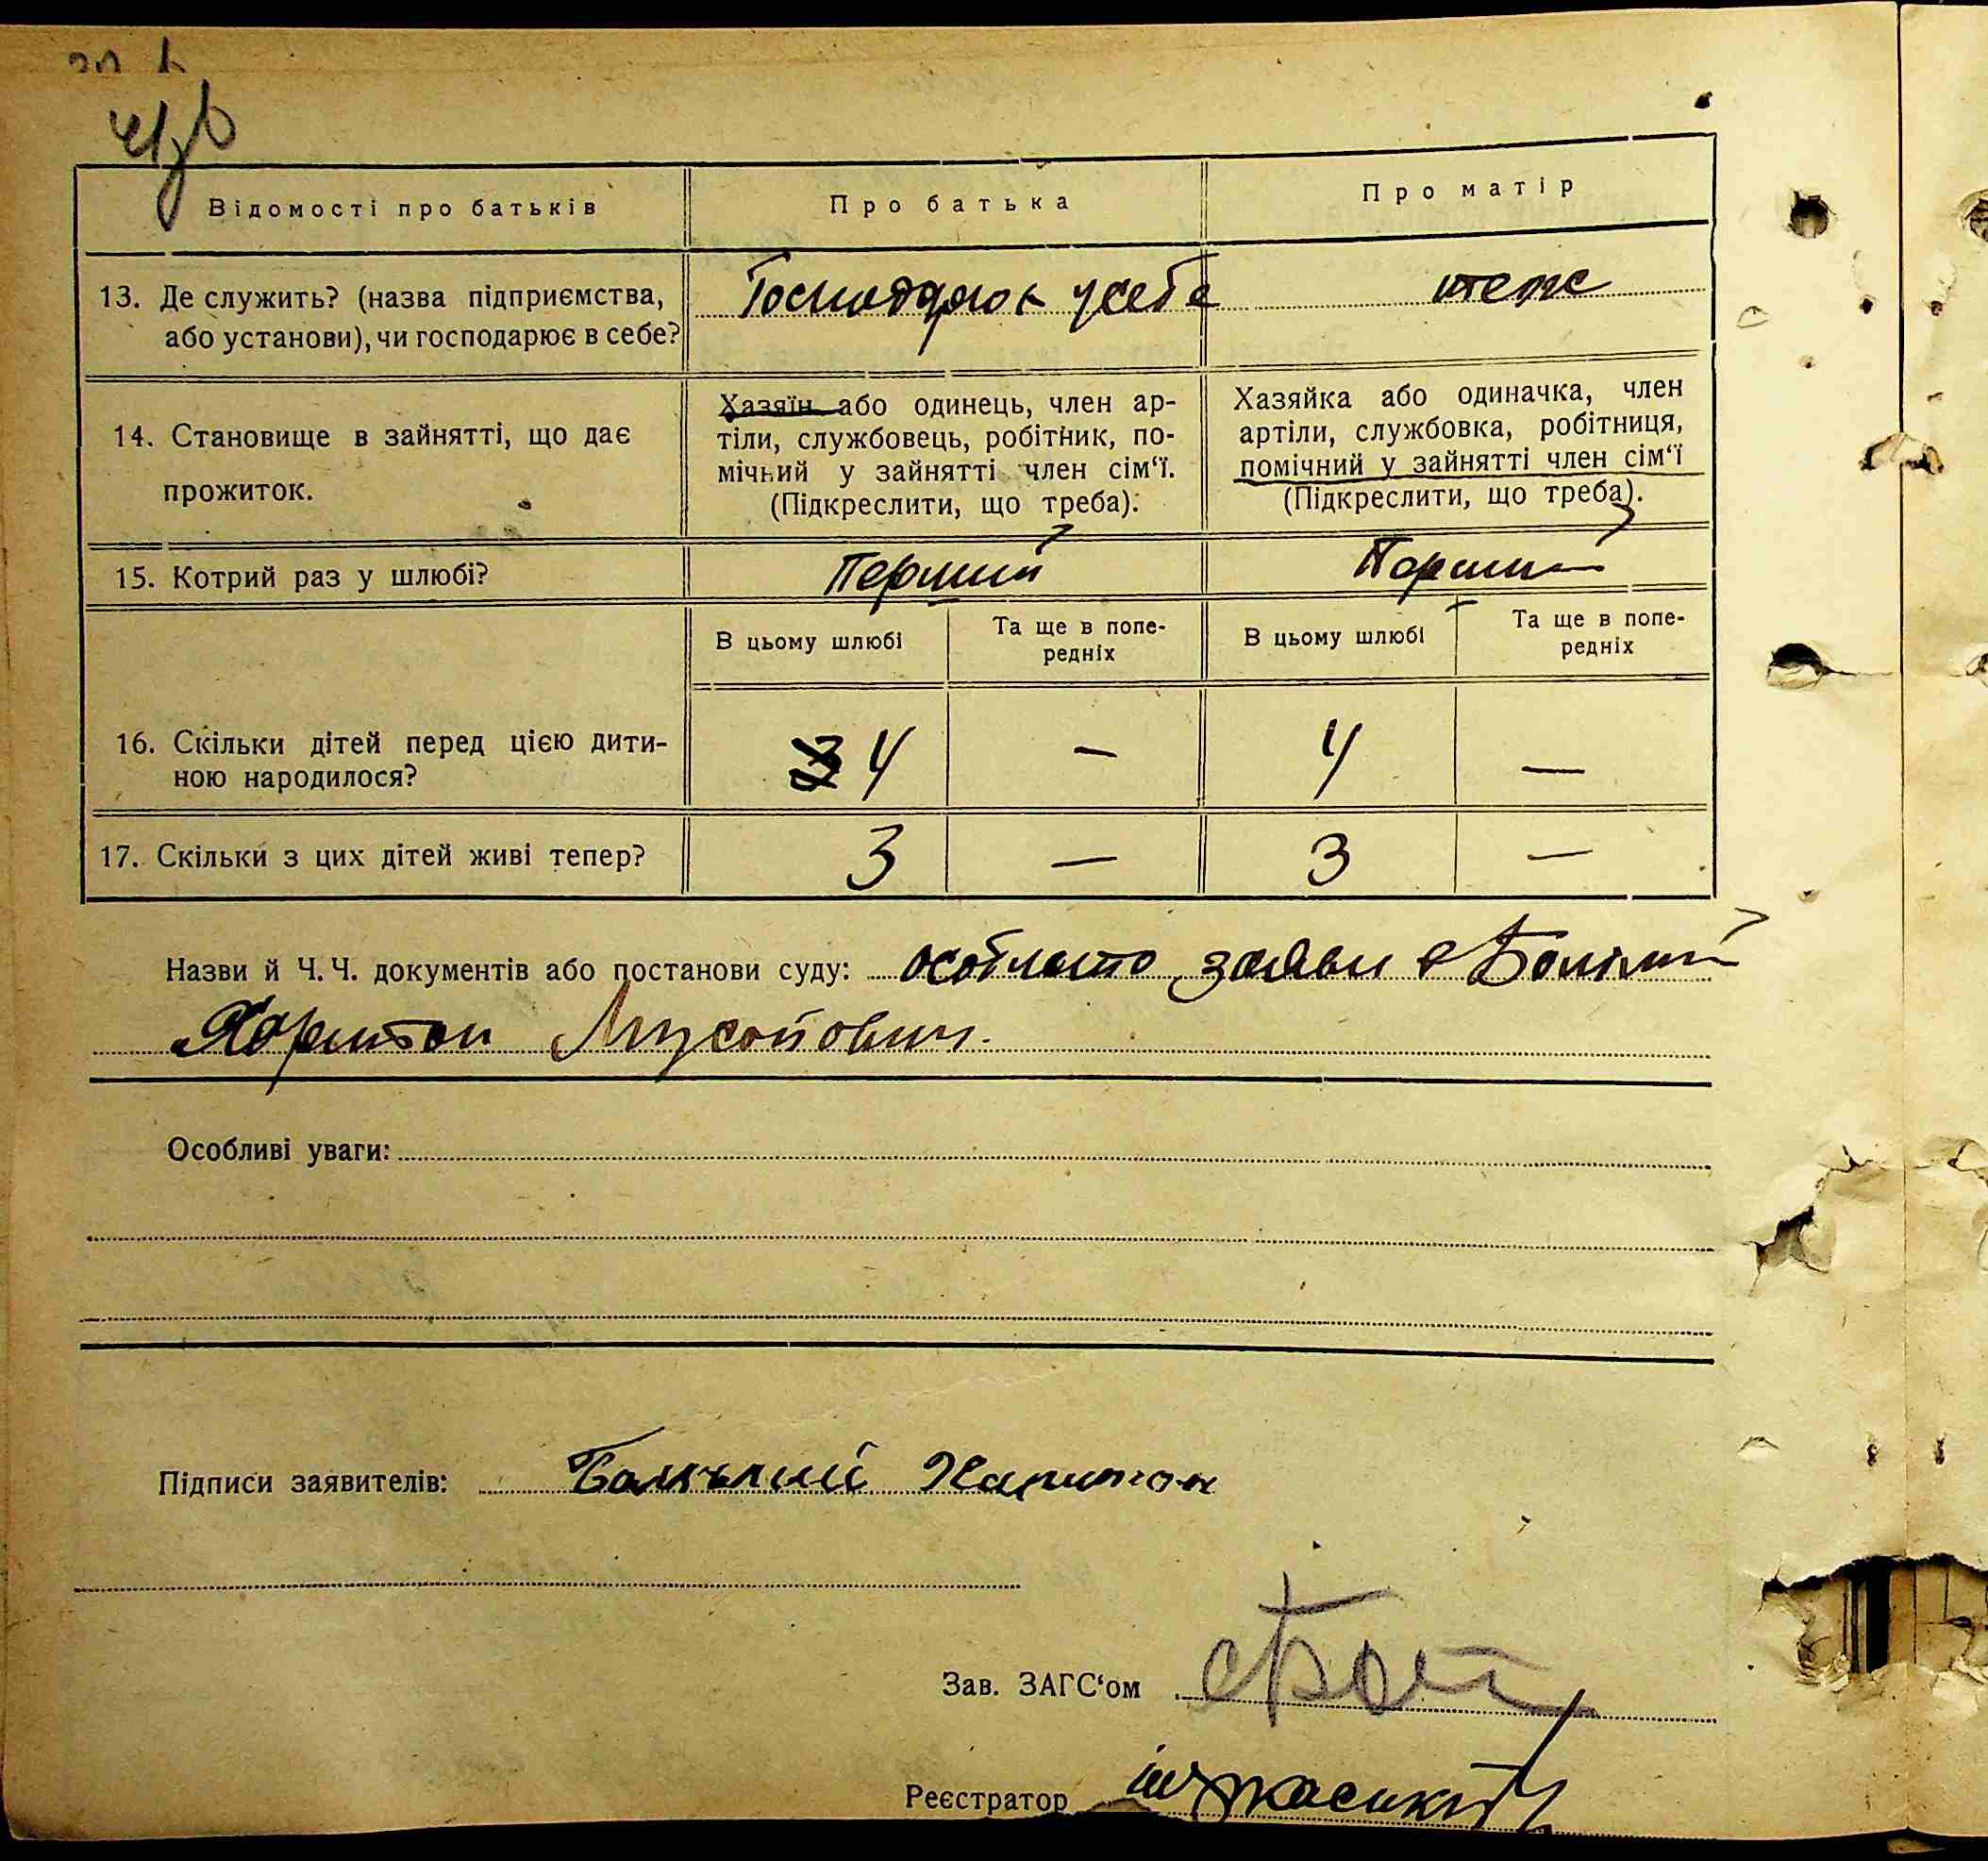 Відомості про батьків
Про батька
Про матір
13. Де служить? (назва підприємства,
або установи), чи господарює в себе?
Господарює у себе
теж
14. Становище в зайнятті, що дає
прожиток.
Хазяїн або одинець, член ар-
тіли, службовець, робітник, по-
мічний у зайнятті член сім‘ї.
(Підкреслити, що треба).
Хазяйка або одиначка, член
артіли, службовка, робітниця,
помічний у зайнятті член сім‘ї
(Підкреслити, що треба).
15. Котрий раз у шлюбі?
Перший
Перший
В цьому шлюбі
Та ще в попе-
редніх
В цьому шлюбі
Та ще в попе-
редніх
16. Скільки дітей перед цією дити-
ною народилося?
3 4
—
4
—
17. Скільки з цих дітей живі тепер?
3
—
3
—
Назви й Ч.Ч. документів або постанови суду: особисто заяви
Харитон Мусійович.
Особливі уваги:
Підписи заявителів: Харитон
Зав. ЗАГС‘ом
Реєстратор